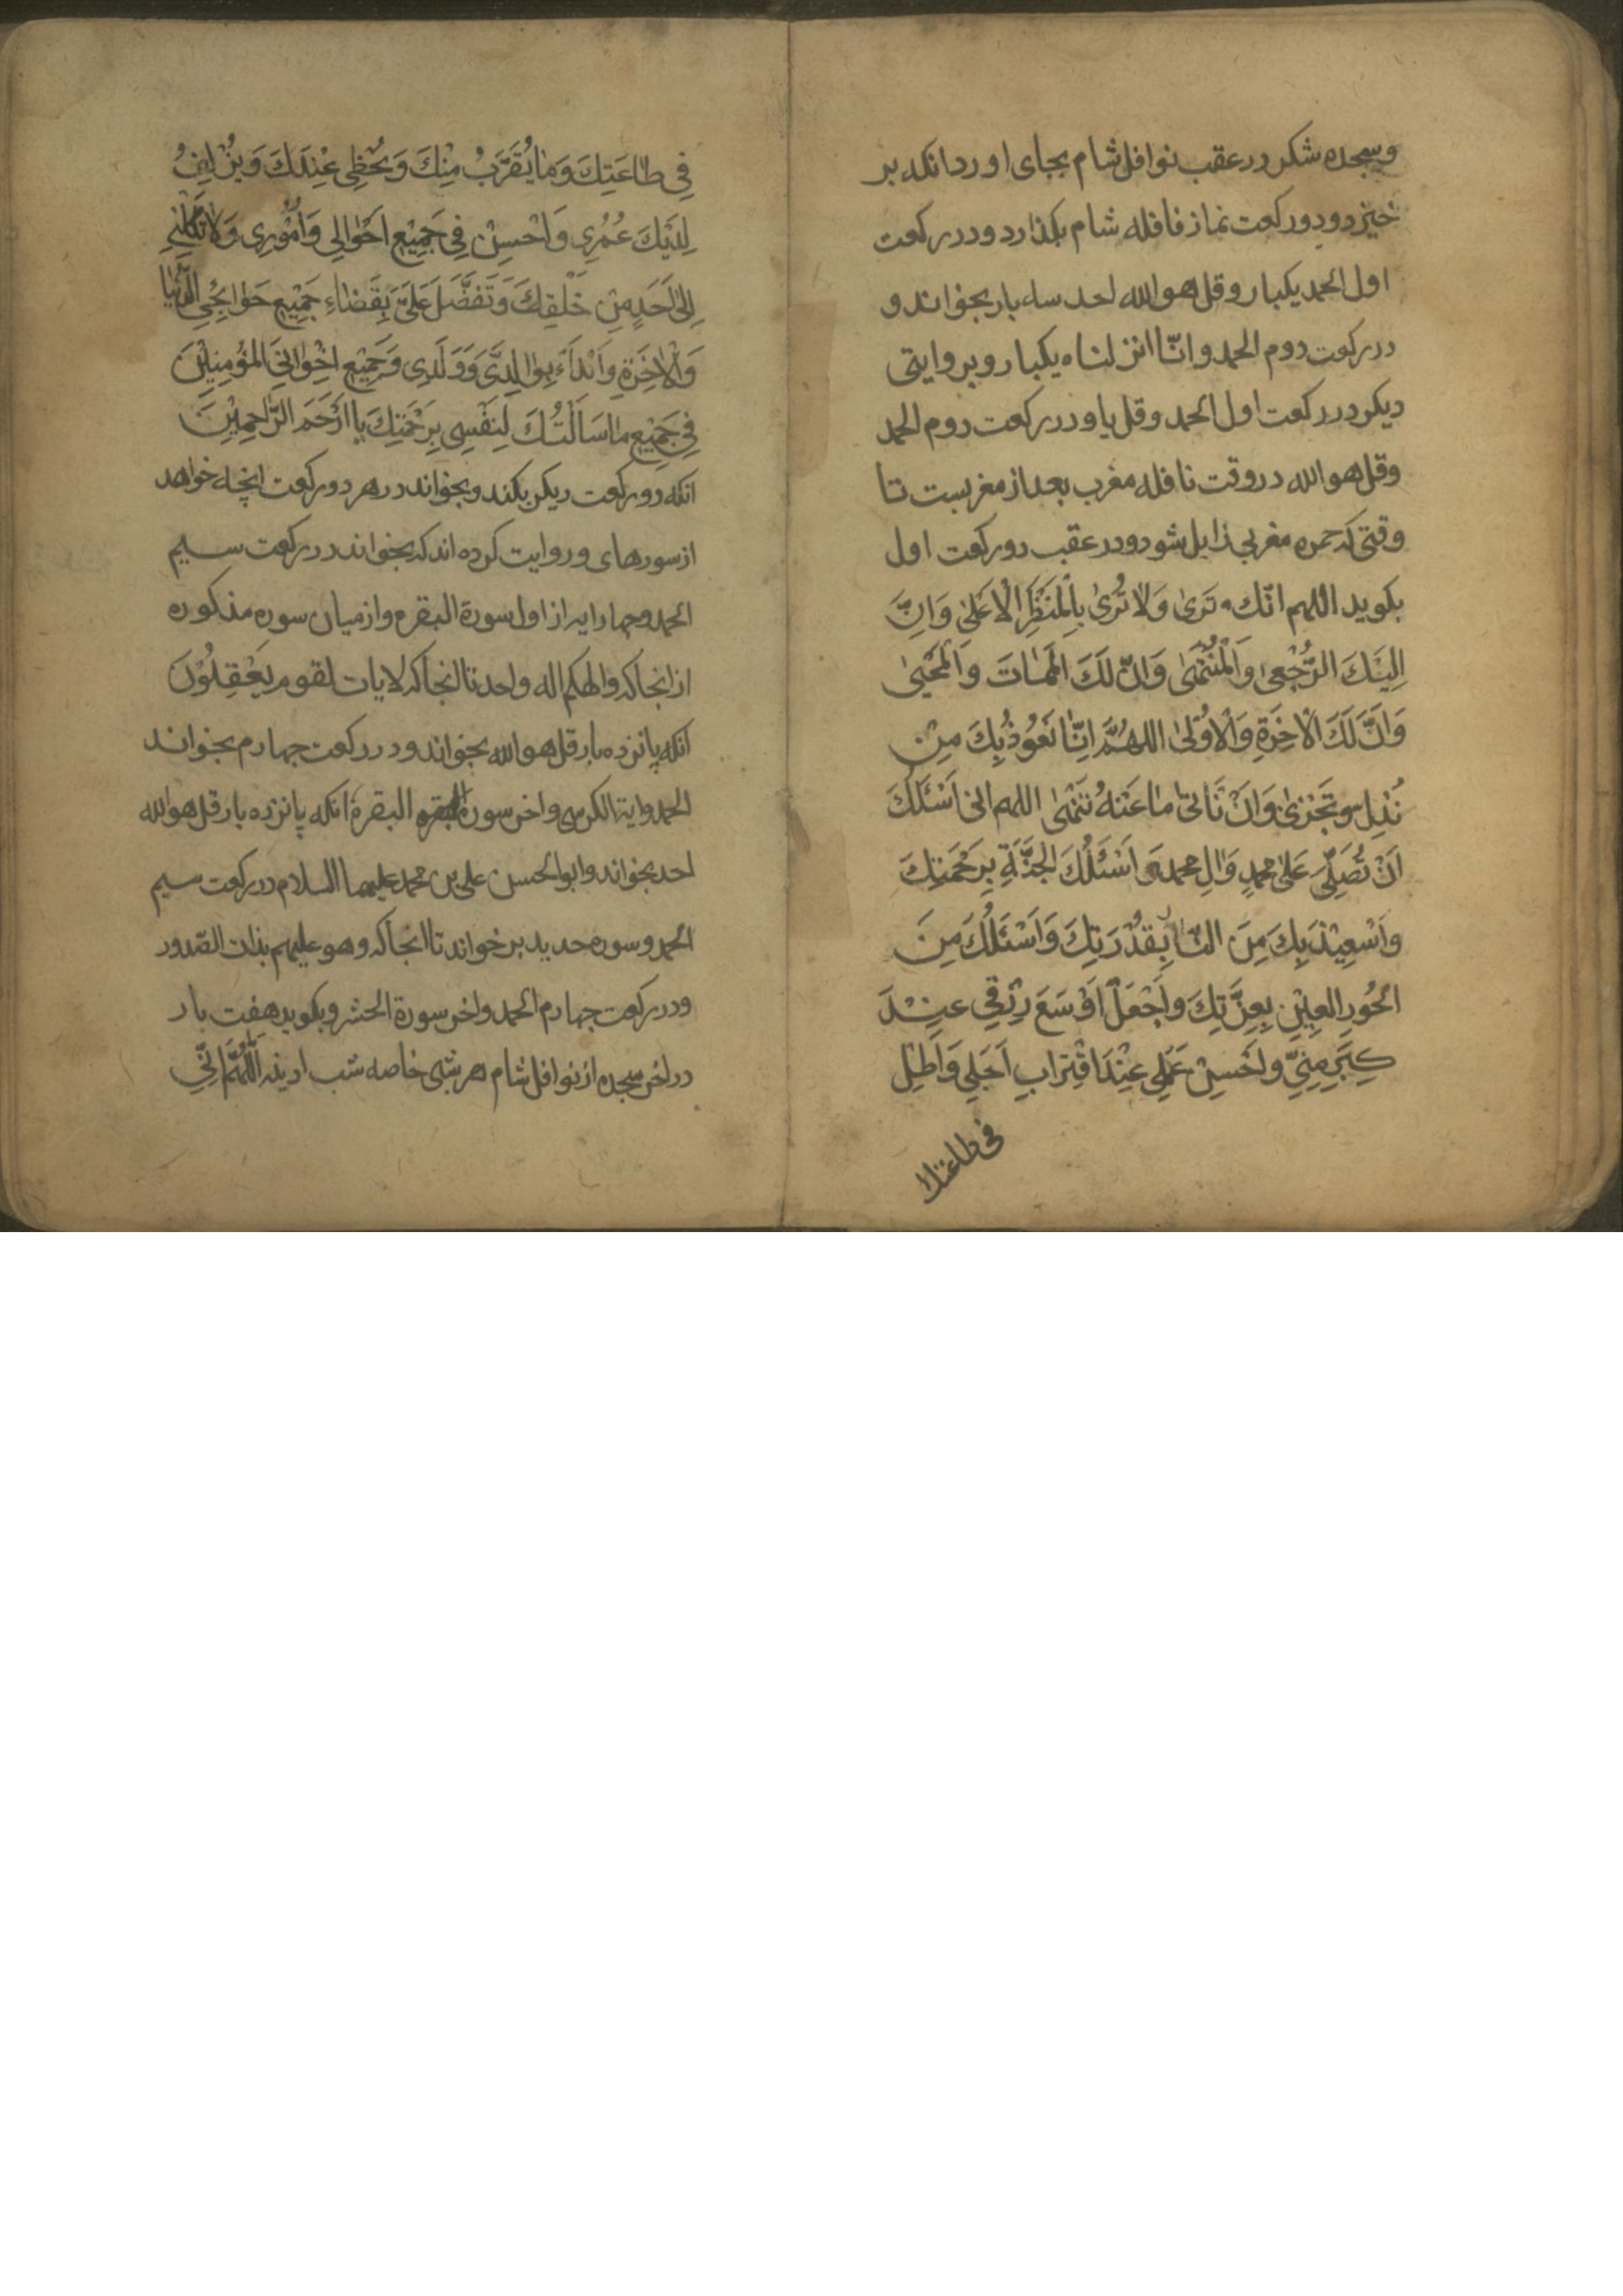 وسجده شکر در عقب نوافل شام بجای اورد انکه بر
خیزد و دو رکعت نماز فافله شام بکذارد و در رکعت
اول الحمد یکبار و قل هو الله احد سه بار بخواند و
در رکعت دوم الحمد و انّا انزلناه یکبار و بروایتی
دیکر در رکعت اول الحمد و قل یا و در رکعت دوم الحمد
و قل هو الله در وقت نافله مغرب بعد از مغربست تا
وقتی که حمره مغربی زایل شود و در عقب دو رکعت اول
بکوید اللهم انّك تَرىٰ وَلَا تُرىٰ بِالْمَنْظَرِ الْاَعْلىٰ وَاِنَّ
اِلَيْكَ الرُّجْعىٰ وَالْمُنْتَهىٰ وَانّ لَكَ الْمَمٰاتَ وَالْمَحْيىٰ
وَاَنَّ لَكَ الْاٰخِرَةِ وَالْاُوْلىٰ اللهُمَّ اِنّٰا نَعُوْذُ بِكَ مِنْ
نُذِلَّ وَنَخْزىٰ وَاَنْ نَاتىٰ مٰا عَنْهُ تَنْهىٰ اللهم انی اَسْئَلُكَ
اَنْ تُصَلِّىَ عَلىٰ محمدٍ وَاٰلِ محمد وَ اَسْئَلُكَ الجَنَّةَ بِرَحْمَتِكَ
وَاَسْعِيْذُ بِكَ مِنَ النّٰا بِقُدْرَتِكَ وَاَسْئَلُكَ مِنَ
الحُورِ العِيْنِ بِعِزَّتِكَ وَاَجْعَلْ اَوْسَعَ رِزْقِي عِنْدَ
كِبَرِ مِنِّي وَاحْسِنْ عَمَلِي عِنْدَ اقْتِرَابِ اَجَلِي وَاَطِلْ
فی طاعتك
فِي طٰاعَتِكَ وَمٰا يُقَرَّبُ مِنْكَ وَيُحْظِي عِنْدَكَ وَيُزْلِفُ
لَدَيْكَ عُمُرِي وَاَحْسِنْ فِي جَمِيْعِ اَحْوٰالِي وَاُمُوْرِي وَلَا تَكِلْنِي
اِلىٰ اَحَدٍ مِنْ خَلْقِكَ وَتَفَضَّلَ عَلَىَّ بِقَضٰاءِ جَمِيْعِ حَوٰائِجِي الدُّنْيٰا
وَالْاٰخِرَةِ وَابْدَاَءْ بِوٰالِدَىَّ وَوَلَدِي وَجَمِيْعِ اِخْوٰانِيَ المُؤْمِنِيْنَ
فِي جَمِيْعِ مٰا سَاَلْتُكَ لِنَفْسِي بِرَحْمَتِكَ يٰا اَرْحَمَ الرّٰاحِمِيْنَ
انکه دو رکعت دیکر بکند و بخواند در هر دو رکعت انچه خواهد
از سورهای و روایت کرده اند که بخواند در رکعت سیم
الحمد و چهار ایه از اول سورة البقره و از میان سوره مذکوره
از انجا که والهکم اله واحد تا انجا که لایات لقوم یَعْقِلُوْنَ
انکه پانزده بار قل هو الله بخواند و در رکعت چهارم بخواند
الحمد و ایة الکرسی و اخر سورة البقره البقرة انکه پانزده بار قل هو الله
احد بخواند و ابو الحسن علی بن محمد علیهما السلام در رکعت سیم
الحمد و سوره حدید بر خواند تا انجا که وهو علیهم بذات الصّدور
و در رکعت چهارم الحمد و اخر سورة الحشر و بکوید هفت بار
در اخر سجده از نوافل شام هر شبی خاصه شب ادینه اَللّٰهُمَّ اِنِّي